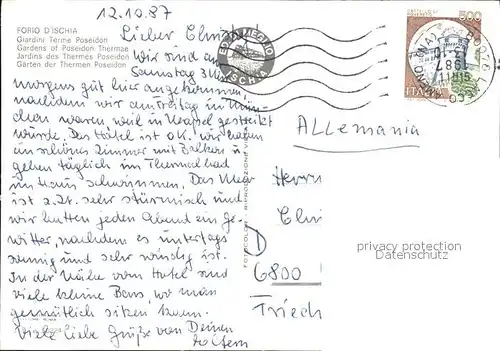 12.10.87
FORIO D'ISCHIA
Giardini Terme Poseidon
Gardens of Poseidon Thermae
Jardins des Thermes Poseidon
Gärten der Thermen Poseidon
Lieber
Wir sind am
Samstag 3 Uhr
morgens gut hier angekommen,
nachdem wir am Freitag in Mün-
chen waren weil in Neapel gestreikt
wurde. Das Hotel ist OK. Wir haben
ein schönes Zimmer mit Balkon u.
gehen täglich im Thermalbad
im Haus schwimmen. Das Meer
ist z.Zt. sehr stürmisch und
wir hatten jeden Abend ein Ge-
witter, nachdem es untertags
sonnig und sehr windig ist.
In der Nähe vom Hotel sind
viele kleine Bars, wo man
gemütlich sitzen kann.
Viele liebe Grüße von Deinen
Eltern
ISCHIA
500
ITALIA
1987
Allemania
Herrn
6800
privacy protection
Datenschutz